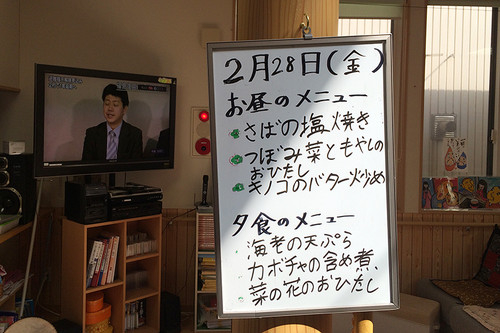 2月28日(金)
お昼のメニュー
さばの塩焼き
つぼみ菜ともやしの
おひたし
キノコのバター炒め
夕食のメニュー
海老の天ぷら
カボチャの含め煮
菜の花のおひたし